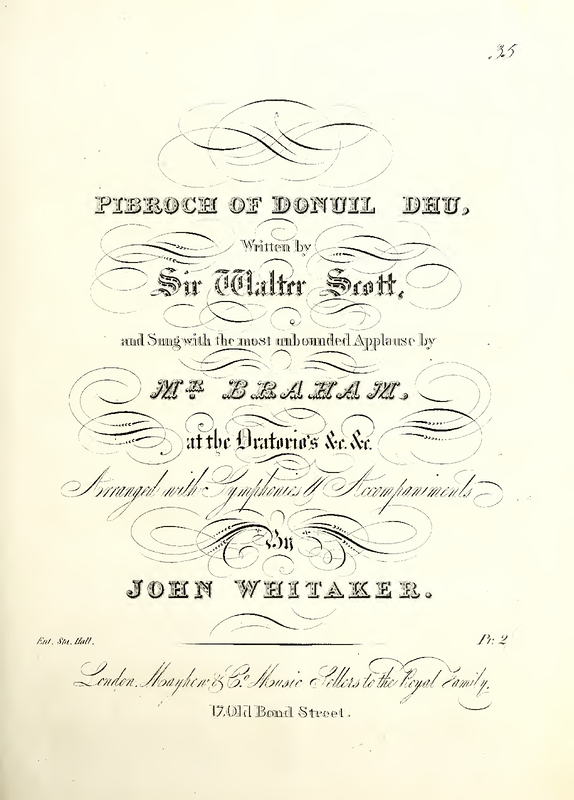 35
PIBROCH OF DONUIL DHU,
Written by
Sir Walter Scott,
and Sung with the most unbounded Applause by
Mr. BRAHAM,
at the Oratorio's &c. &c.
Arranged with Symphonies & Accompaniments
By
JOHN WHITAKER.
Ent. Sta. Hall.
Pr. 2
London, Mayhew & Co. Music Sellers to the Royal Family.
17, Old Bond Street.